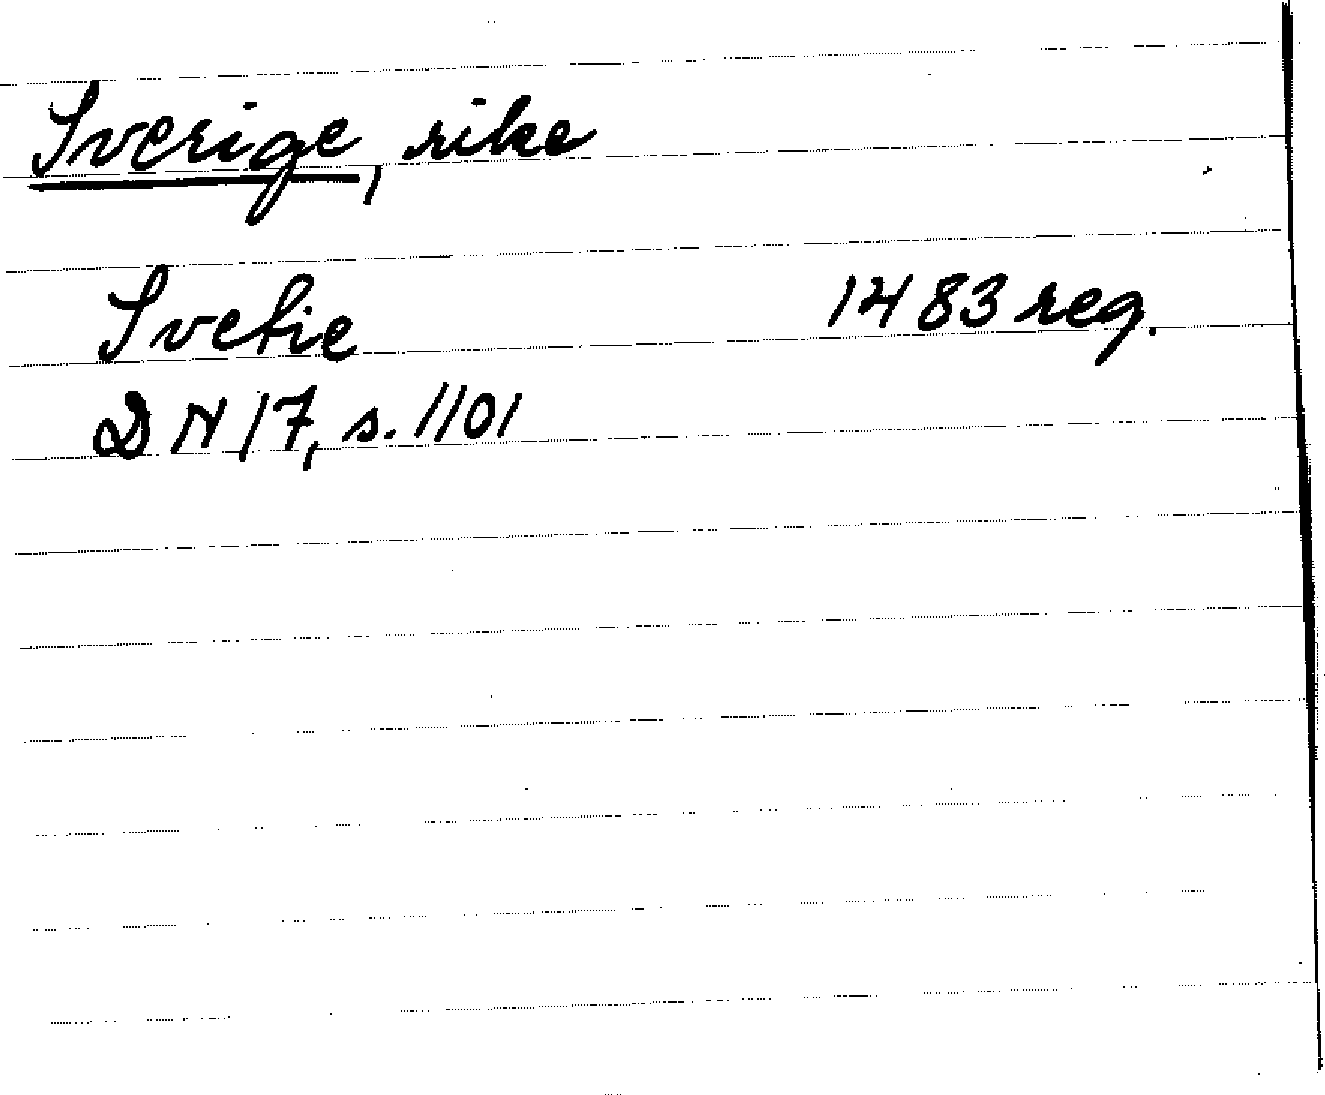 Sverige, rike
Svetie 1483 reg.
DN 17, s. 1101